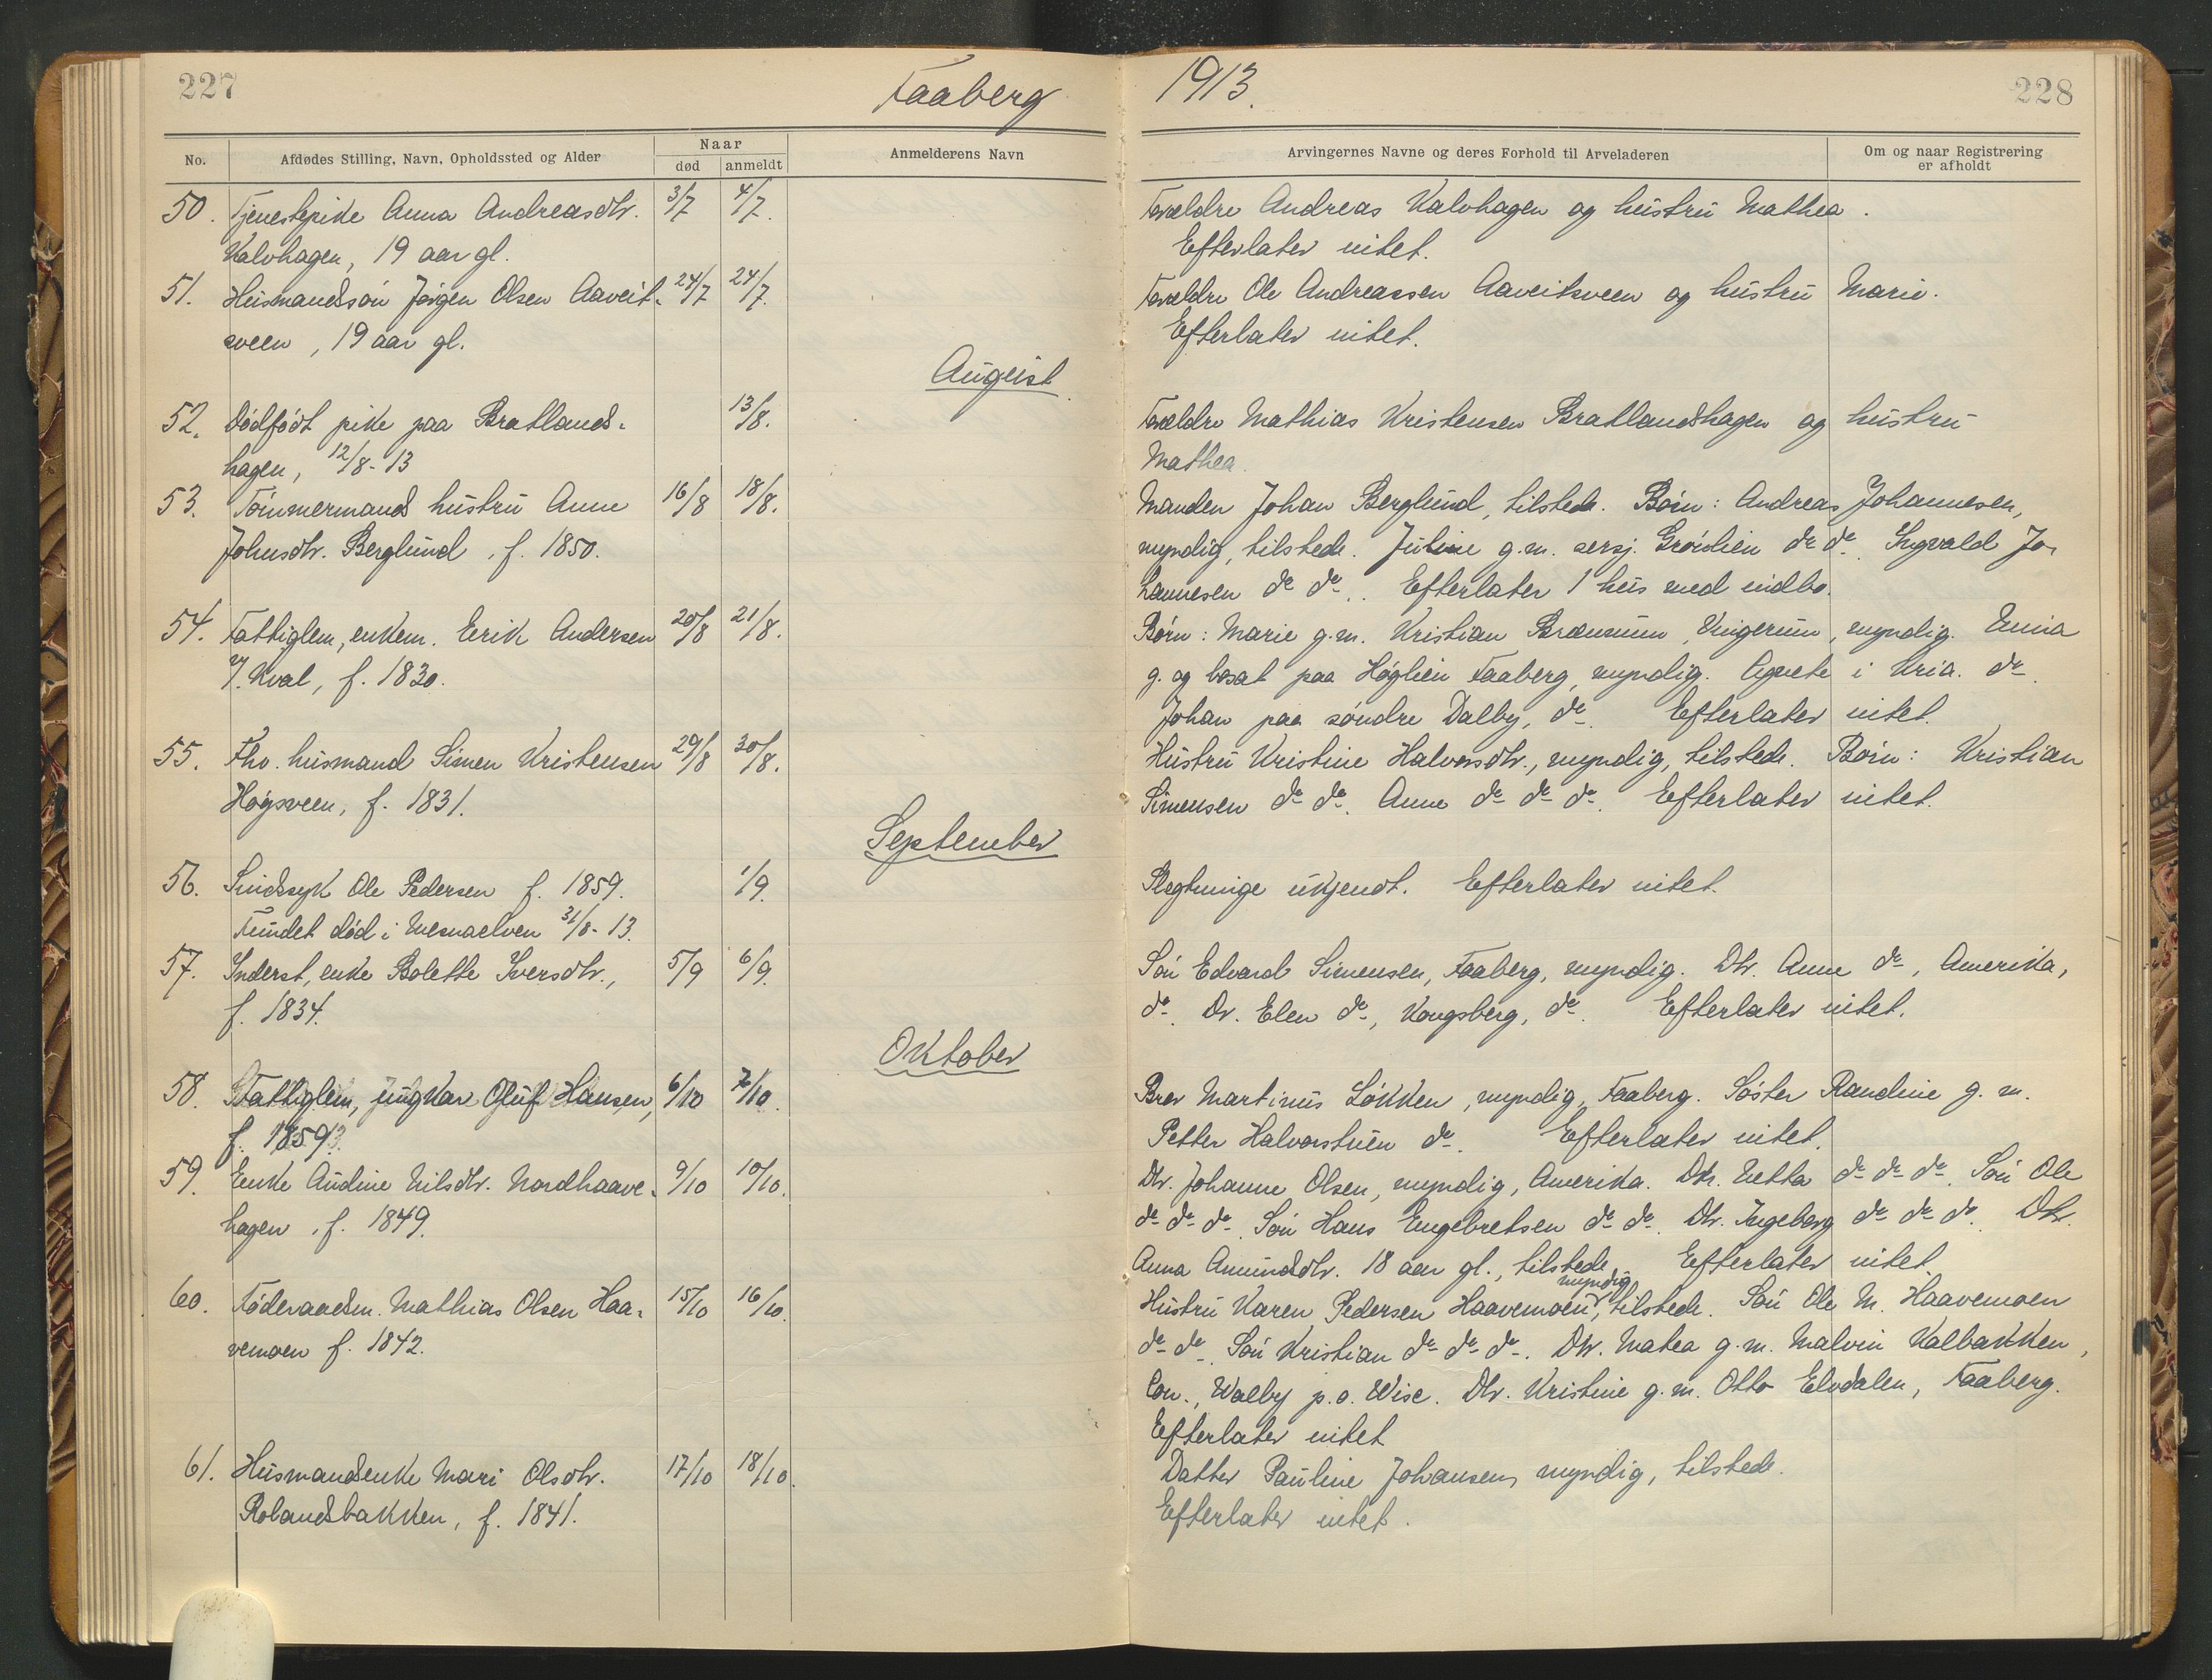 227
Faaberg
1913.
228
No.
Afdødes Stilling, Navn, Opholdssted og Alder
Naar
død
anmeldt
Anmelderens Navn
Arvingernes Navne og deres Forhold til Arveladeren
Om og naar Registrering
er afholdt
50. Tjenestepike Anna Andreasdtr. 3/7 4/7. Forældre Andreas Kalvhagen og hustru Mathea.
Kalvhagen, 19 aar gl. Efterlater intet.
51. Husmandssøn Jørgen Olsen Aaveit- 24/7 24/7. Forældre Ole Andreassen Aaveitsveen og hustru Marie.
sveen, 19 aar gl. Efterlater intet.
August
52. Dødfødt pike paa Bratlands- 13/8. Forældre Mathias Kristensen Bratlandshagen og hustru
hagen, 12/8-13 Mathea.
53. Tømmermands hustru Anne 16/8 18/8. Manden Johan Berglund, tilstede. Børn: Andreas Johannesen,
Johnsdtr. Berglund, f. 1850. myndig, tilstede. Juline g.m. sersj. Grønlien do do. Ingvald Jo-
hannesen do do. Efterlater 1 hus med indbo.
54. Fattiglem, enkem. Eerik Andersen 20/8 21/8. Børn: Marie g.m. Kristian Brænnum, Ringerum, myndig. Enia
y. Kval, f. 1830. g. og bosat paa Høglien Faaberg, myndig. Agnete i Kria. do
Johan paa søndre Dalby, do. Efterlater intet.
55. Fhv. husmand Simen Kristensen 29/8 30/8. Hustru Kristine Halvorsdtr., myndig, tilstede. Børn: Kristian
Høgsveen, f. 1831. Simensen do do. Anne do do do. Efterlater intet.
September
56. Sindssyk Ole Pedersen f. 1859. 1/9. Slegtninge ukjendt. Efterlater intet.
Fundet død i Mesnaelven 31/8-13.
57. Inderst, enke Bolette Iversdtr., 5/9 6/9. Søn Edvard Simensen, Faaberg, myndig. Dtr. Anne do, Amerika,
f. 1834. do. Dr. Elen do, Kongsberg, do. Efterlater intet.
Oktober
58. Fattiglem, ungkar Oluf Hansen, 6/10 7/10. Bror Martinus Løkken, myndig, Faaberg. Søster Randine g. m.
f. 1859. Petter Halvorstuen do. Efterlater intet.
59. Enke Andine Nilsdtr. Nordhaave- 9/10 10/10. Dtr. Johanne Olsen, myndig, Amerika. Dtr. Netta do do do. Søn Ole
hagen, f. 1849. do do do. Søn Hans Engebretsen do do. Dtr. Ingeborg do do do. Dtr.
Anna Amundsdtr. 18 aar gl., tilstede. Efterlater intet.
myndig
60. Føderaadsm. Mathias Olsen Haa- 15/10 16/10. Hustru Karen Pedersen Haavemoen, tilstede. Søn Ole M. Haavemoen
vemoen f. 1842. do do. Søn Kristian do do do. Dtr. Matea g.m. Malvin Kalbakken,
Con., Walby p.o. Wisc. Dtr. Kristine g.m. Otto Elvdalen, Faaberg.
Efterlater intet
61. Husmandsenke Mari Olsdtr. 17/10 18/10. Datter Pauline Johansen, myndig, tilstede.
Rolandsbakken, f. 1841. Efterlater intet.